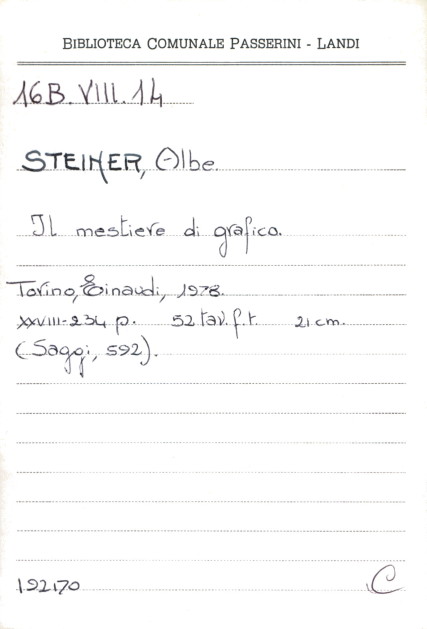 BIBLIOTECA COMUNALE PASSERINI - LANDI
16B.VIII.14
STEINER, Albe.
Il mestiere di grafico.
Torino, Einaudi, 1978.
XXVIII-234 p. 52 tav. f.t. 21 cm.
(Saggi, 592).
192170
C